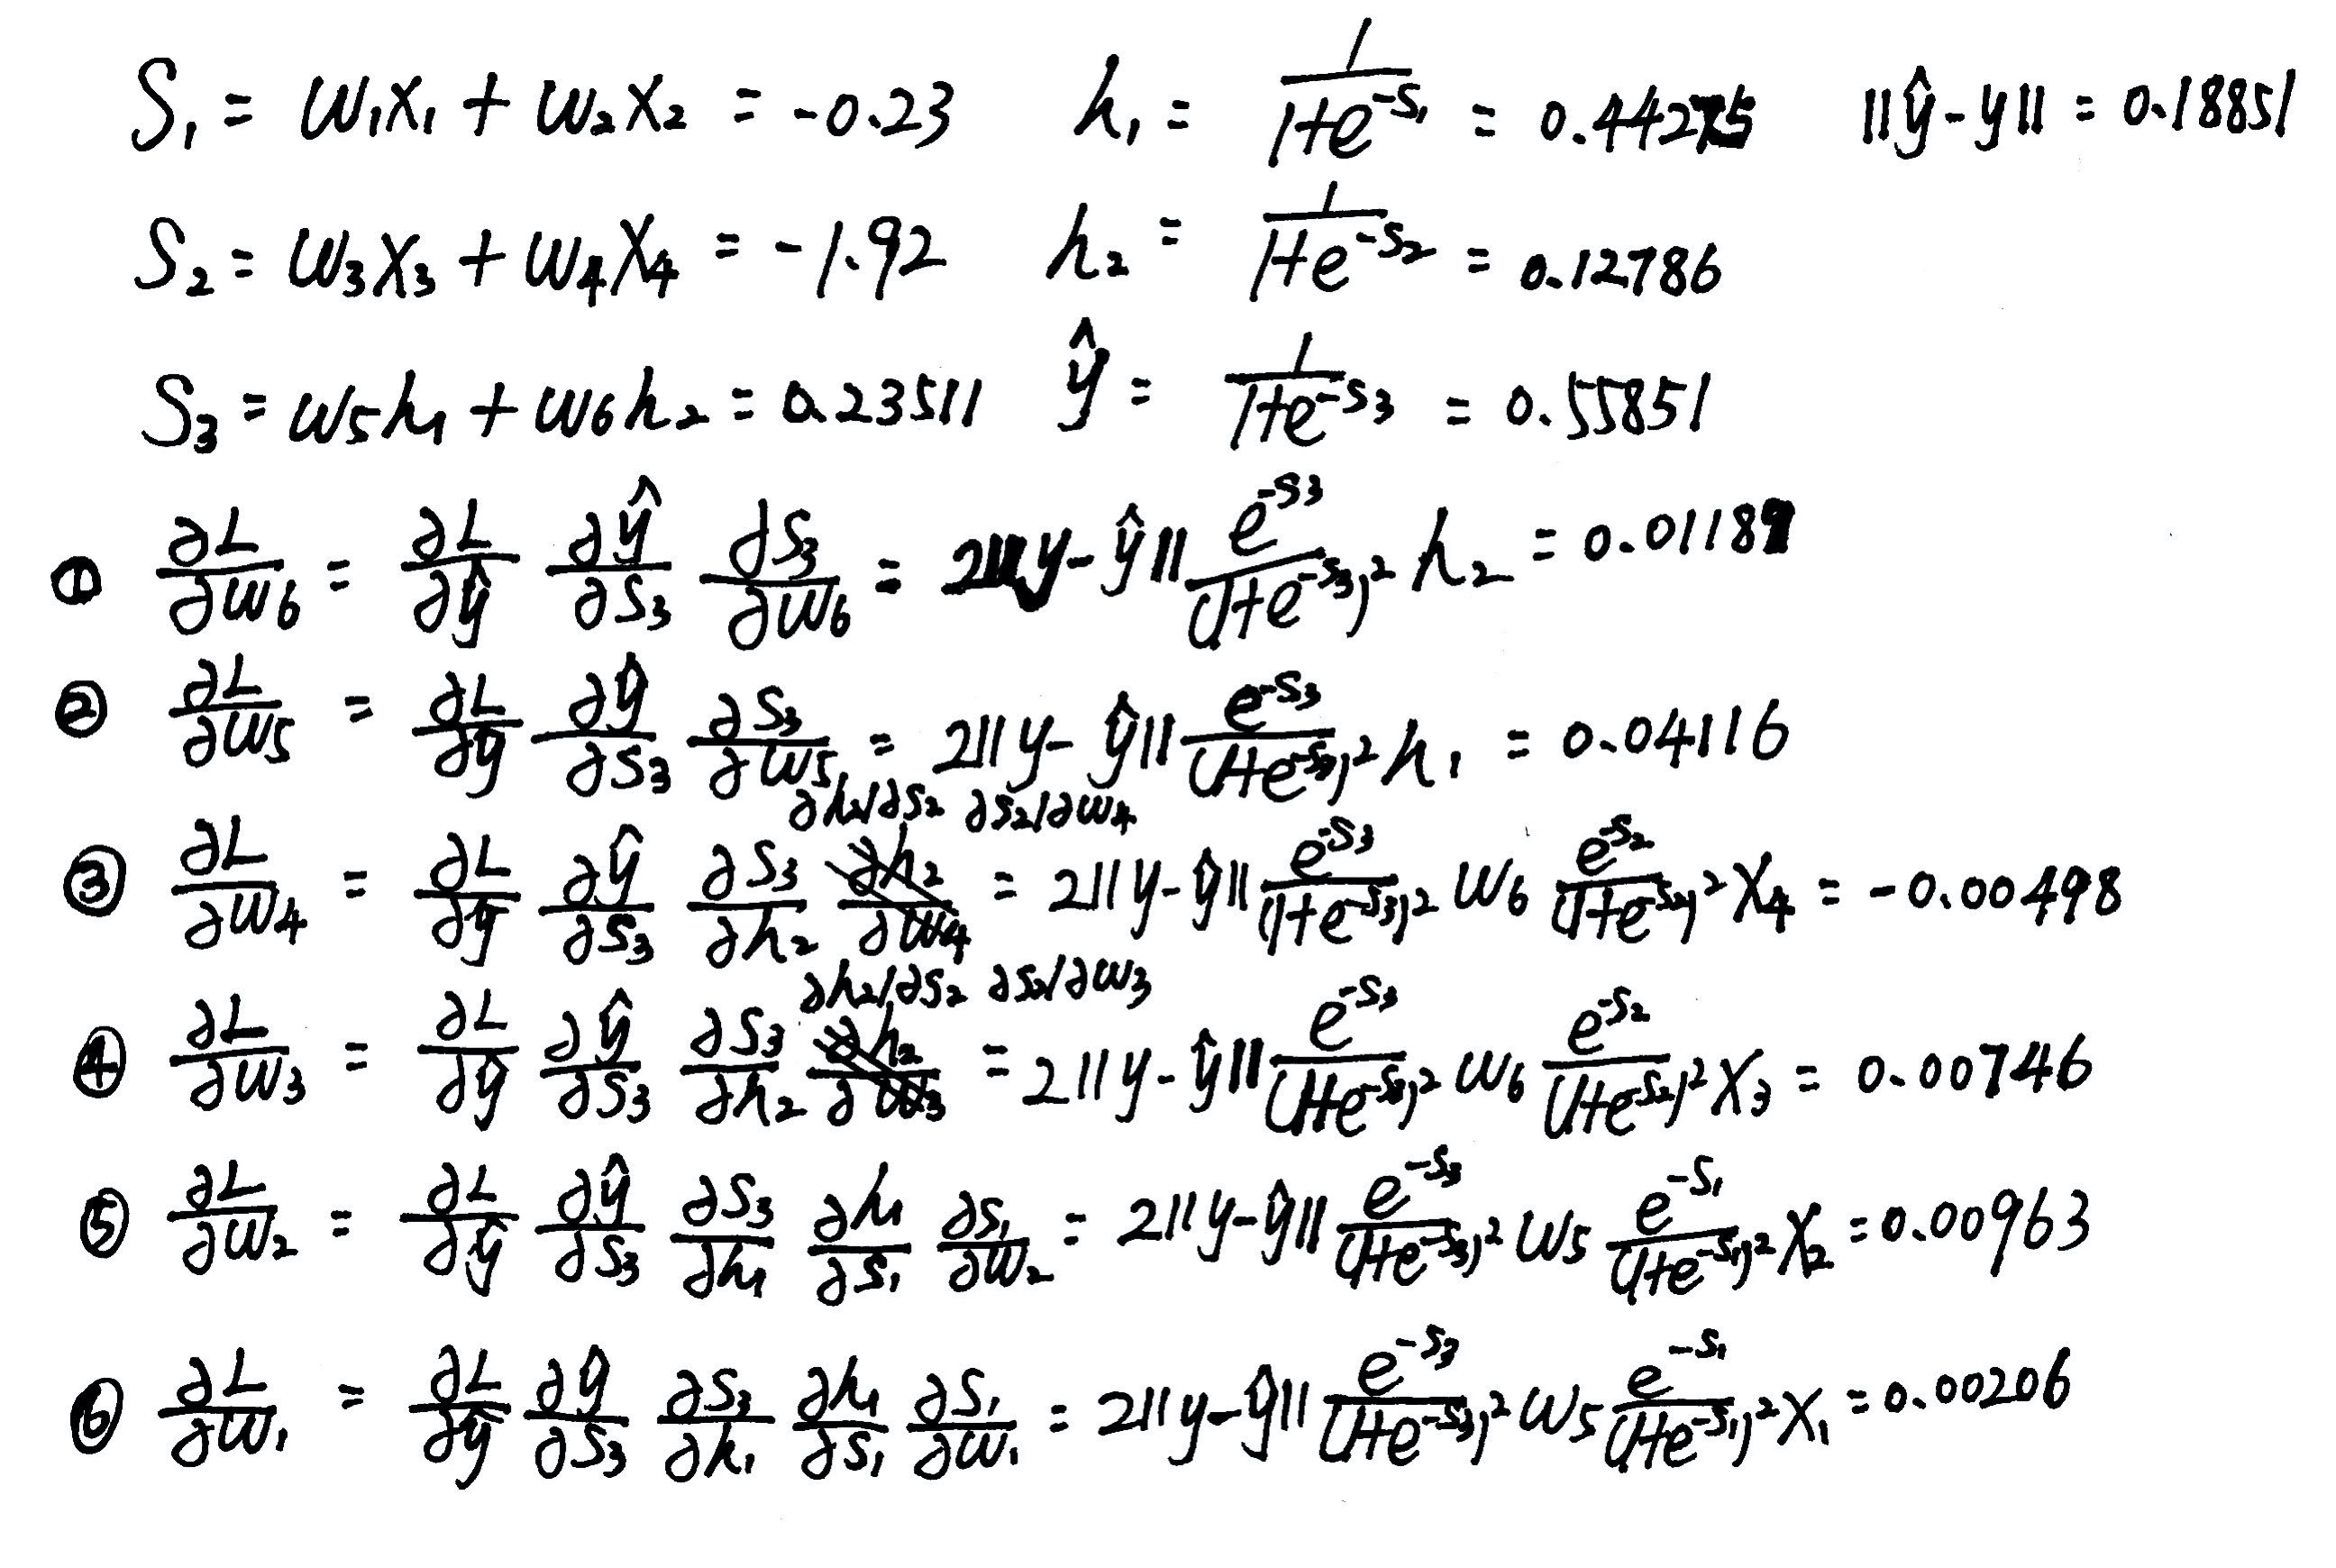 S₁ = w₁x₁ + w₂x₂ = -0.23 h₁ = 1/(1+e^(-S₁)) = 0.44275 ||ŷ-y|| = 0.18851
S₂ = w₃x₃ + w₄x₄ = -1.92 h₂ = 1/(1+e^(-S₂)) = 0.12786
S₃ = w₅h₁ + w₆h₂ = 0.23511 ŷ = 1/(1+e^(-S₃)) = 0.55851
① ∂L/∂w₆ = ∂L/∂ŷ ∂ŷ/∂S₃ ∂S₃/∂w₆ = 2||y-ŷ|| e^(-S₃)/(1+e^(-S₃))² h₂ = 0.01189
② ∂L/∂w₅ = ∂L/∂ŷ ∂ŷ/∂S₃ ∂S₃/∂w₅ = 2||y-ŷ|| e^(-S₃)/(1+e^(-S₃))² h₁ = 0.04116
∂h₂/∂S₂ ∂S₂/∂w₄
③ ∂L/∂w₄ = ∂L/∂ŷ ∂ŷ/∂S₃ ∂S₃/∂h₂ ∂h₂/∂w₄ = 2||y-ŷ|| e^(-S₃)/(1+e^(-S₃))² w₆ e^(-S₂)/(1+e^(-S₂))² x₄ = -0.00498
∂h₂/∂S₂ ∂S₂/∂w₃
④ ∂L/∂w₃ = ∂L/∂ŷ ∂ŷ/∂S₃ ∂S₃/∂h₂ ∂h₂/∂w₃ = 2||y-ŷ|| e^(-S₃)/(1+e^(-S₃))² w₆ e^(-S₂)/(1+e^(-S₂))² x₃ = 0.00746
⑤ ∂L/∂w₂ = ∂L/∂ŷ ∂ŷ/∂S₃ ∂S₃/∂h₁ ∂h₁/∂S₁ ∂S₁/∂w₂ = 2||y-ŷ|| e^(-S₃)/(1+e^(-S₃))² w₅ e^(-S₁)/(1+e^(-S₁))² x₂ = 0.00963
⑥ ∂L/∂w₁ = ∂L/∂ŷ ∂ŷ/∂S₃ ∂S₃/∂h₁ ∂h₁/∂S₁ ∂S₁/∂w₁ = 2||y-ŷ|| e^(-S₃)/(1+e^(-S₃))² w₅ e^(-S₁)/(1+e^(-S₁))² x₁ = 0.00206